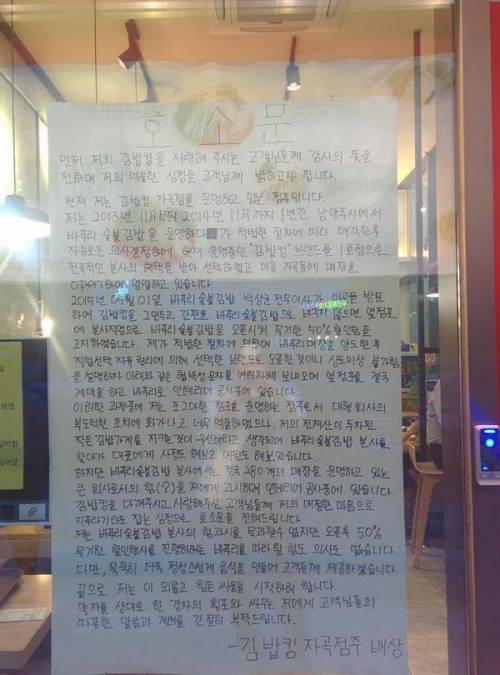 호 소 문
먼저 저희 김밥킹을 사랑해 주시는 고객님들께 감사의 뜻을
전하며 저의 억울한 심정을 고객님께 밝히고자 합니다.
현재 저는 김밥킹 자곡점을 운영하고 있는 점주입니다.
저는 2013년 11월부터 2014년 11월까지 1년간 남양주시에서
바푸리 숯불김밥을 운영하다 가 적법한 절차에 따라 매각한후
자유로운 의사결정하에 현재 운영중인 "김밥킹" 브랜드를 1호점으로
전폭적인 본사의 혜택을 받아 선택하였고 이곳 자곡동에 매장을
open하여 운영하고 있습니다.
2015년 04월 01일 바푸리숯불김밥 박상훈 전무이사가 이곳을 방문
하여 김밥킹을 그만두고 간판을 바푸리숯불김밥으로 바꾸지 않으면 옆점포
에 본사직영으로 바푸리숯불김밥을 오픈시켜 무기한 50% 할인한을
고지하였습니다. 제가 적법한 절차에 의하여 바푸리매장을 양도한 후
직업선택 자유 권리에 의해 선택한 브랜드로 오픈한것이니 상도의상 불가함
을 설명하자 아래와 같은 협박성 문자를 여러차례 보내오며 옆점포를 결국
계약을 하고 바푸리로 인테리어 공사중에 있습니다.
이러한 과정중에 저는 조그마한 점포를 운영하는 점주로서 대형회사의
부도덕한 조치에 화가나고 너무 억울하였으나, 저의 전재산이 투자된
작은 김밥가게를 지키는것이 우선이라고 생각되어 바푸리숯불김밥 본사를
찾아가 대표에게 사정도 해보고 애원도 해보았습니다.
하지만 바푸리숯불김밥 본사에서는 전국 280개의 매장을 운영하고 있는
큰 회사로서의 힘(?)을 저에게 과시하며 인테리어 공사중에 있습니다.
김밥킹을 아껴주시고 사랑해주신 고객님들께 저의 애절한 마음으로
지푸라기라도 잡는 심정으로 호소문을 전해드립니다.
저는 바푸리숯불김밥 본사의 힘과시를 탓과할수 없지만 오픈후 50%
무기한 할인행사를 진행하려는 바푸리를 따라할 힘도 의사도 없습니다.
다만, 묵묵히 더욱 정성스럽게 음식을 만들어 고객들께 제공하겠습니다.
끝으로 저는 이 외롭고 힘든 싸움을 시작하려 합니다.
약자를 상대로 한 강자의 횡포와 싸우는 저에게 고객님들의
따뜻한 말씀과 격려를 간절히 부탁드립니다.
-김밥킹 자곡점주 배상